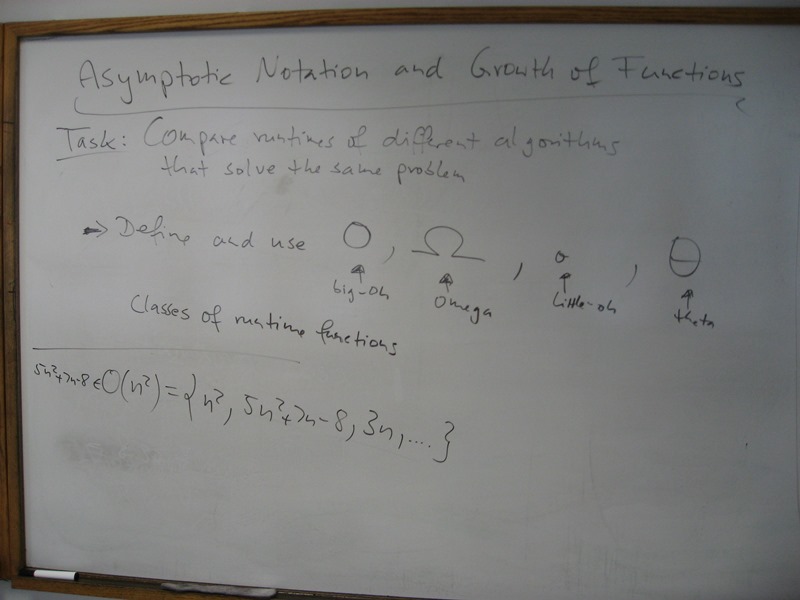 Asymptotic Notation and Growth of Functions
Task: Compare runtimes of different algorithms
that solve the same problem
→ Define and use O, Ω, o, Θ
big-oh Omega little-oh theta
Classes of runtime functions
5n²+7n-8 ∈ O(n²) = {n², 5n²+7n-8, 3n, ....}